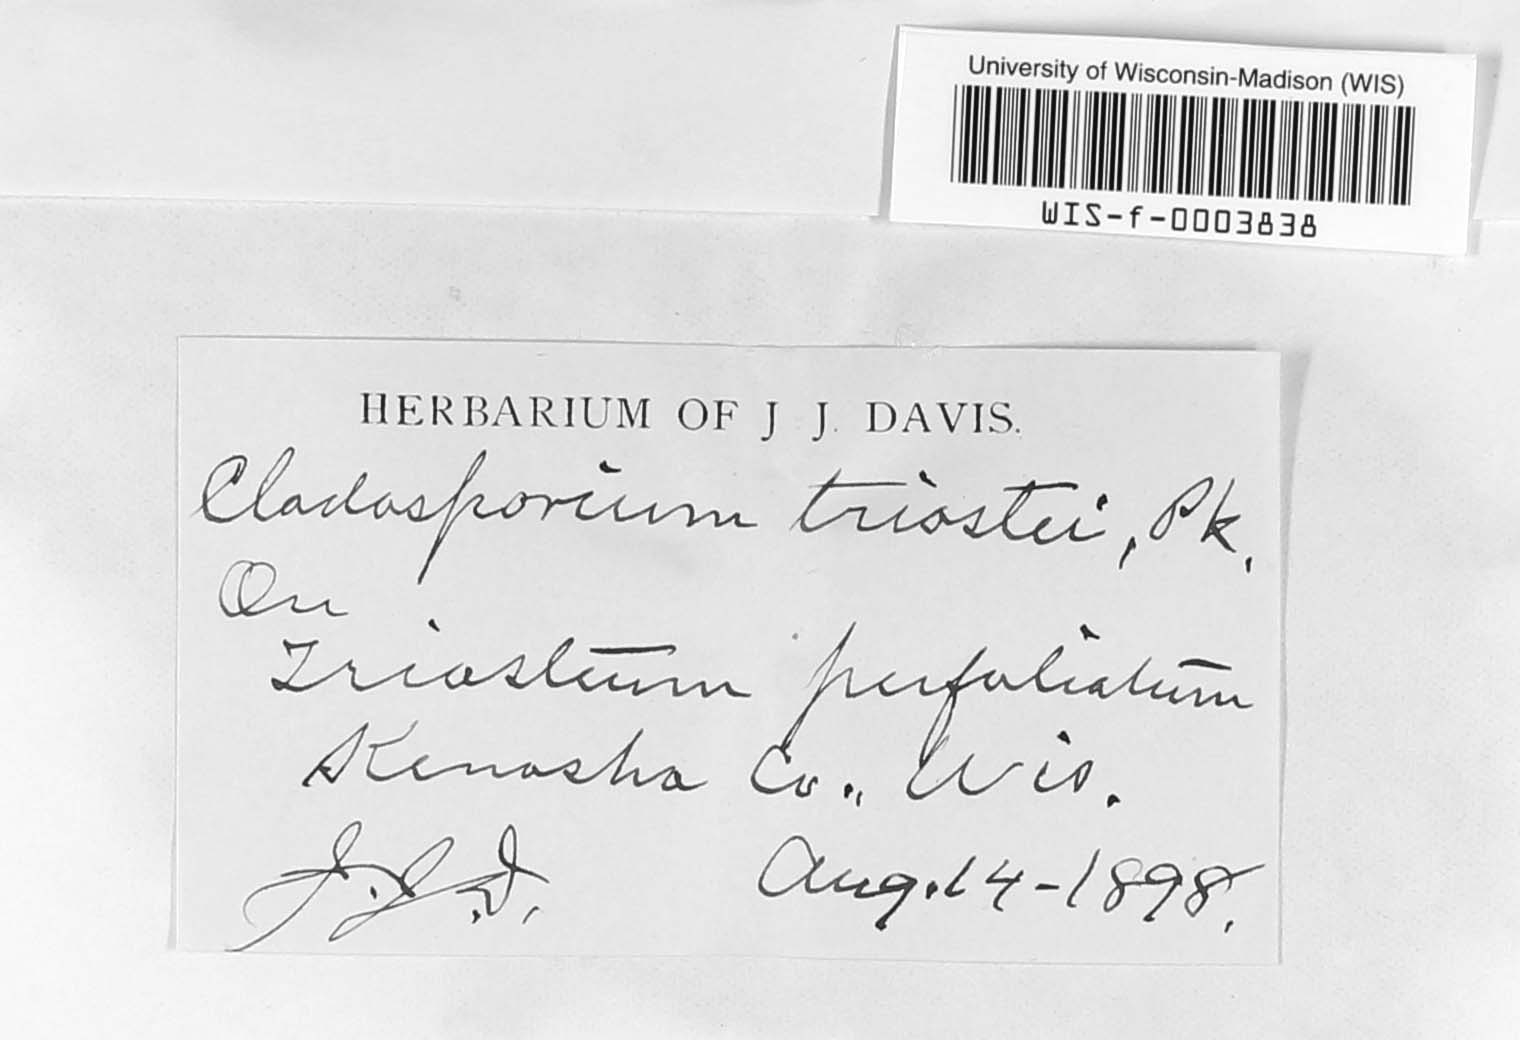 University of Wisconsin-Madison (WIS)
WIS-f-0003838
HERBARIUM OF J. J. DAVIS.
Cladosporium triostei, Pk.
On
Triosteum perfoliatum
Kenosha Co., Wis.
J.J.D. Aug. 14-1898.